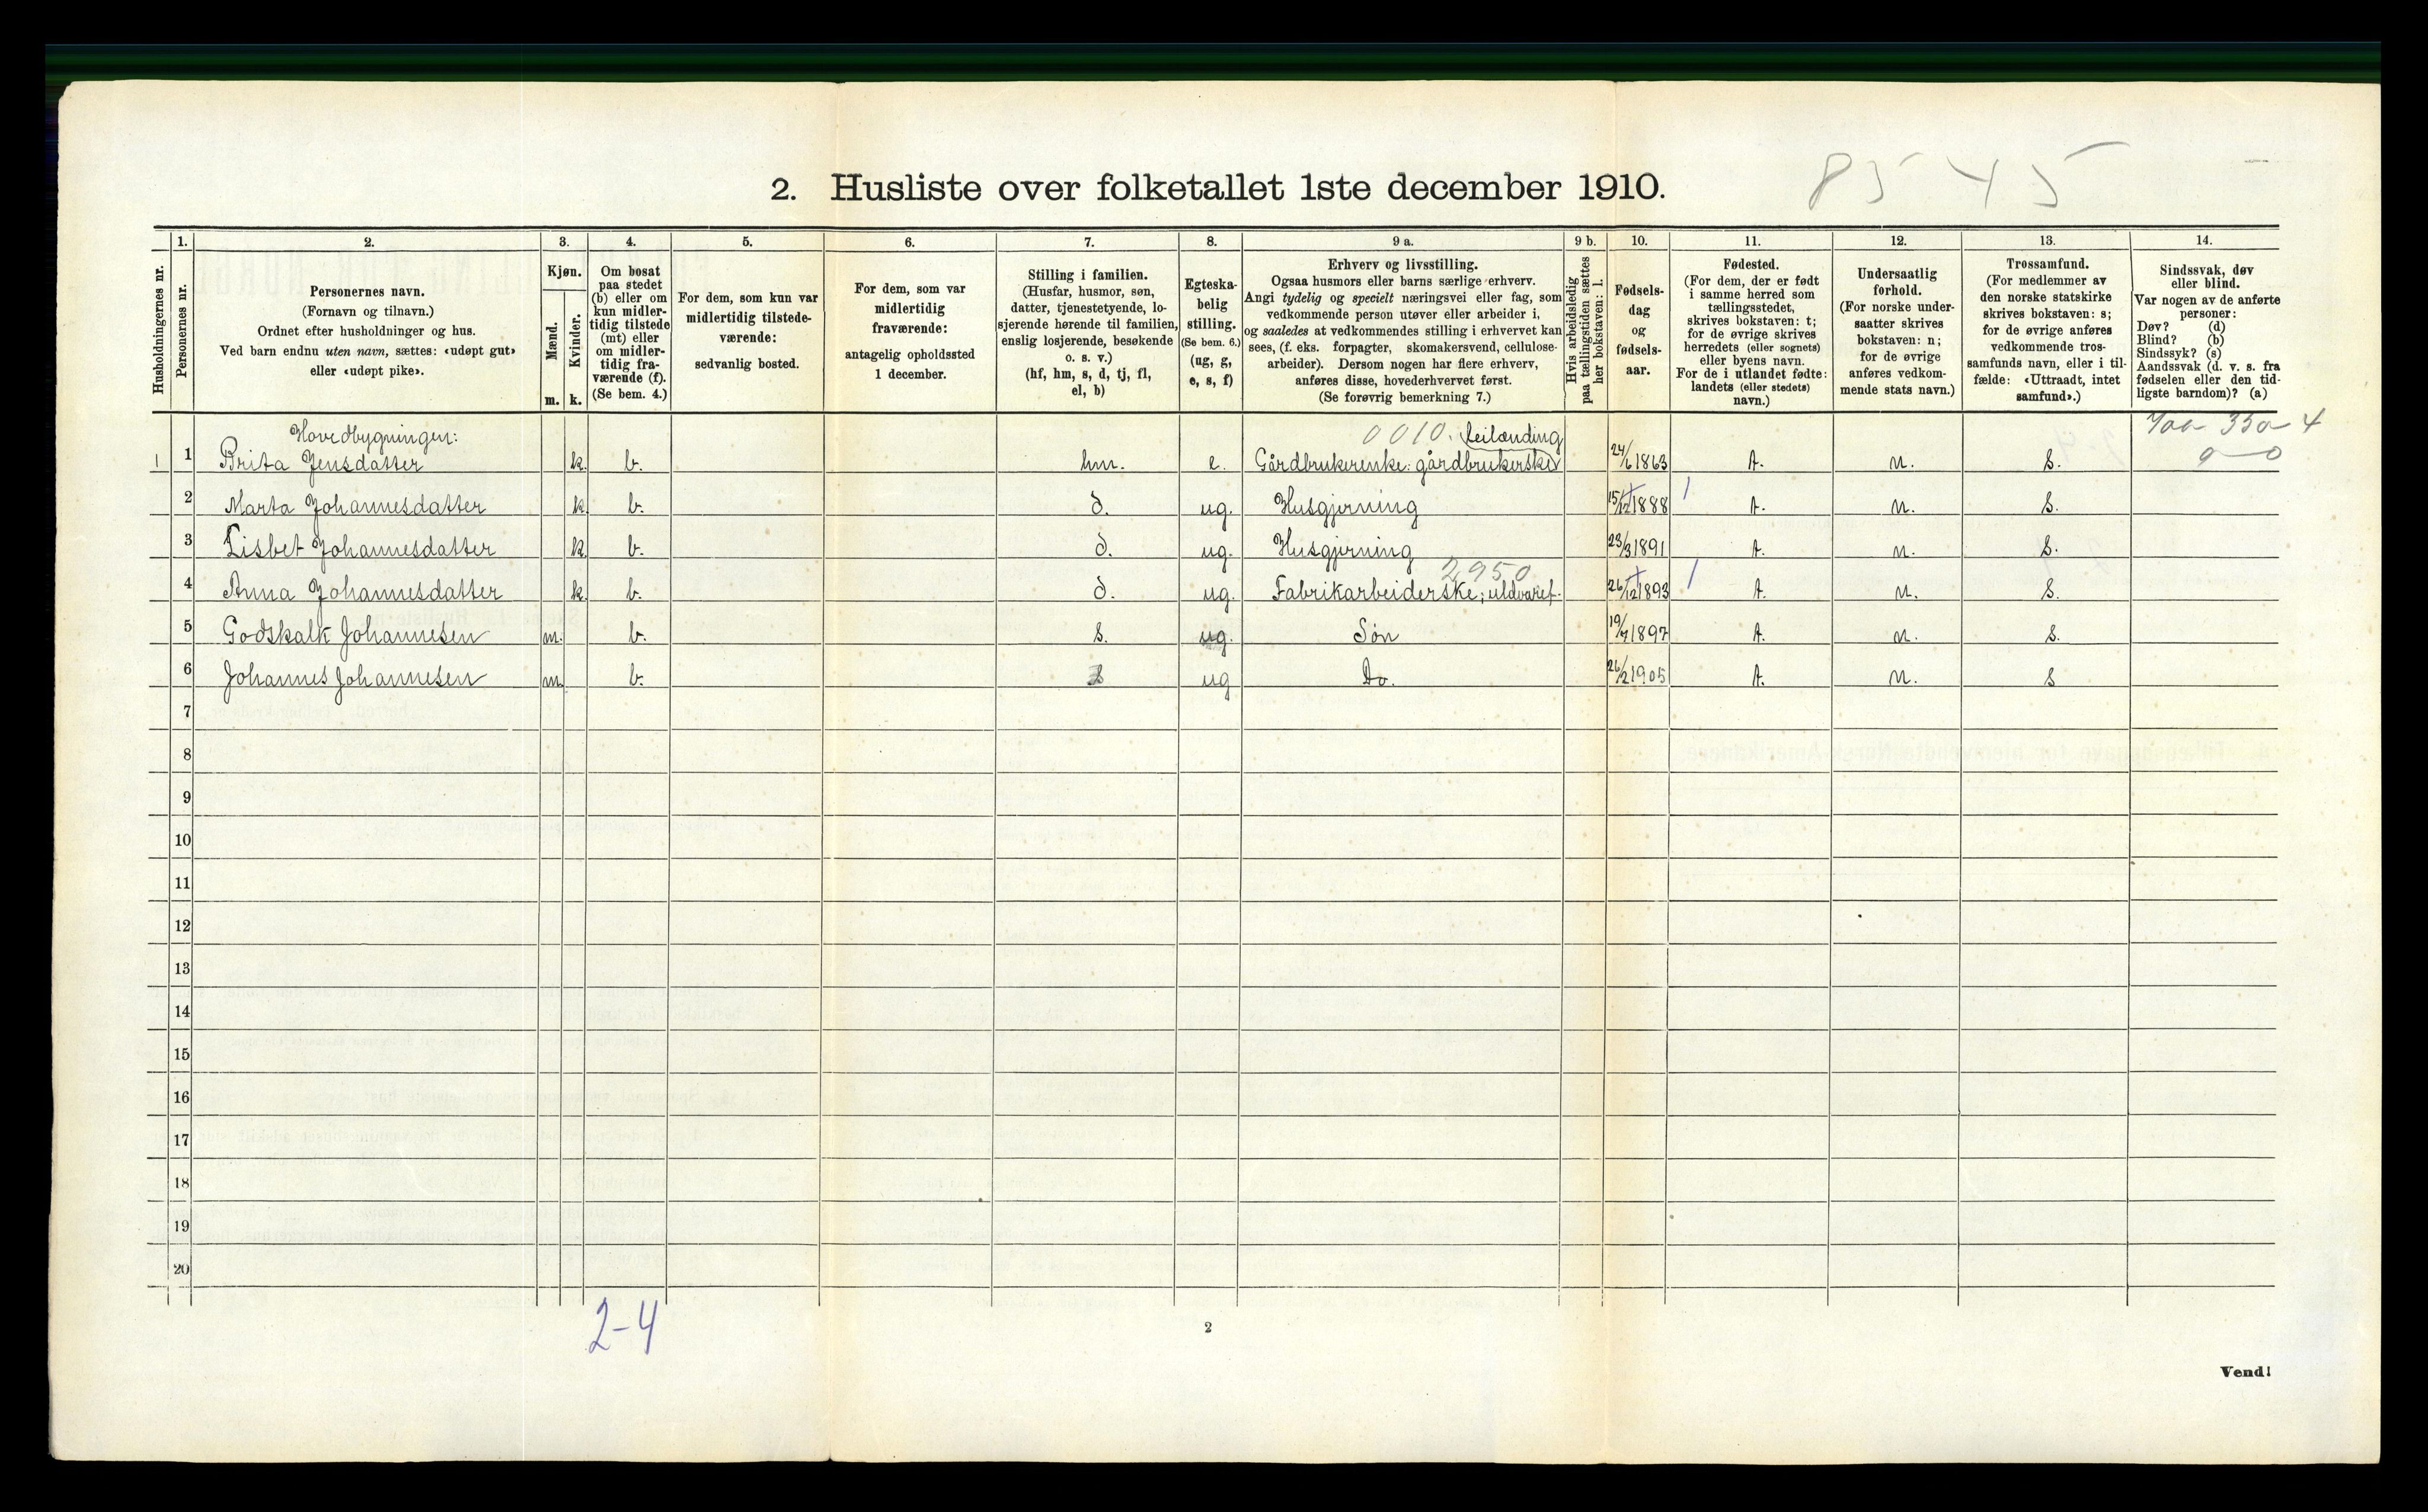 2. Husliste over folketallet 1ste december 1910.
8545
Husholdningernes nr.
1.
Personernes nr.
2.
Personernes navn.
(Fornavn og tilnavn.)
Ordnet efter husholdninger og hus.
Ved barn endnu uten navn, sættes: «udøpt gut»
eller «udøpt pike».
3.
Kjøn.
Mænd.
Kvinder.
m. k.
4.
Om bosat
paa stedet
(b) eller om
kun midler-
tidig tilstede
(mt) eller
om midler-
tidig fra-
værende (f).
(Se bem. 4.)
5.
For dem, som kun var
midlertidig tilstede-
værende:
sedvanlig bosted.
6.
For dem, som var
midlertidig
fraværende:
antagelig opholdssted
1 december.
7.
Stilling i familien.
(Husfar, husmor, søn,
datter, tjenestetyende, lo-
sjerende hørende til familien,
enslig losjerende, besøkende
o. s. v.)
(hf, hm, s, d, tj, fl,
el, b)
8.
Egteska-
belig
stilling.
(Se bem. 6.)
(ug, g,
e, s, f)
9 a.
Erhverv og livsstilling.
Ogsaa husmors eller barns særlige erhverv.
Angi tydelig og specielt næringsvei eller fag, som
vedkommende person utøver eller arbeider i,
og saaledes at vedkommendes stilling i erhvervet kan
sees, (f. eks. forpagter, skomakersvend, cellulose-
arbeider). Dersom nogen har flere erhverv,
anføres disse, hovederhvervet først.
(Se forøvrig bemerkning 7.)
9 b.
Hvis arbeidsledig
paa tællingstiden sættes
her bokstaven: l.
10.
Fødsels-
dag
og
fødsels-
aar.
11.
Fødested.
(For dem, der er født
i samme herred som
tællingsstedet,
skrives bokstaven: t;
for de øvrige skrives
herredets (eller sognets)
eller byens navn.
For de i utlandet fødte:
landets (eller stedets)
navn.)
12.
Undersaatlig
forhold.
(For norske under-
saatter skrives
bokstaven: n;
for de øvrige
anføres vedkom-
mende stats navn.)
13.
Trossamfund.
(For medlemmer av
den norske statskirke
skrives bokstaven: s;
for de øvrige anføres
vedkommende tros-
samfunds navn, eller i til-
fælde: «Uttraadt, intet
samfund».)
14.
Sindssvak, døv
eller blind.
Var nogen av de anførte
personer:
Døv? (d)
Blind? (b)
Sindssyk? (s)
Aandssvak (d. v. s. fra
fødselen eller den tid-
ligste barndom)? (a)
Hovedbygningen: 0010. Leilænding
1 1 Brita Jensdatter k. b. hm. e. Gårdbrukerenke: gårdbrukerske 24/6 1863 t. n. s.
2 Marta Johannesdatter k. b. d. ug. Husgjerning 15/12 1888 t. n. s.
3 Lisbet Johannesdatter k. b. d. ug. Husgjerning 23/3 1891 t. n. s.
2950
4 Anna Johannesdatter k. b. d. ug. Fabrikarbeiderske; uldvaref. 26/12 1893 t. n. s.
5 Godskalk Johannesen m. b. s. ug. Søn 19/7 1897 t. n. s.
6 Johannes Johannesen m. b. s ug Do. 26/2 1905 t. n. s
7
8
9
10
11
12
13
14
15
16
17
18
19
20
2-4
2
Vend!